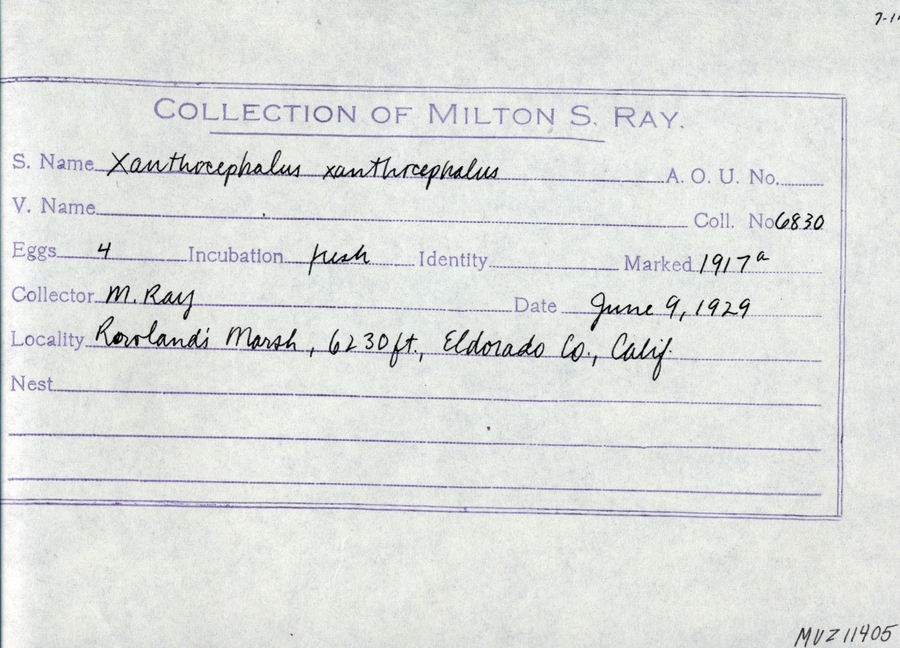 COLLECTION OF MILTON S. RAY.
S. Name Xanthocephalus xanthocephalus A. O. U. No.
V. Name Coll. No 6830
Eggs 4 Incubation fresh Identity Marked 1917a
Collector M. Ray Date June 9, 1929
Locality Rowlands Marsh, 6230 ft., Eldorado Co., Calif.
Nest
MVZ 11405